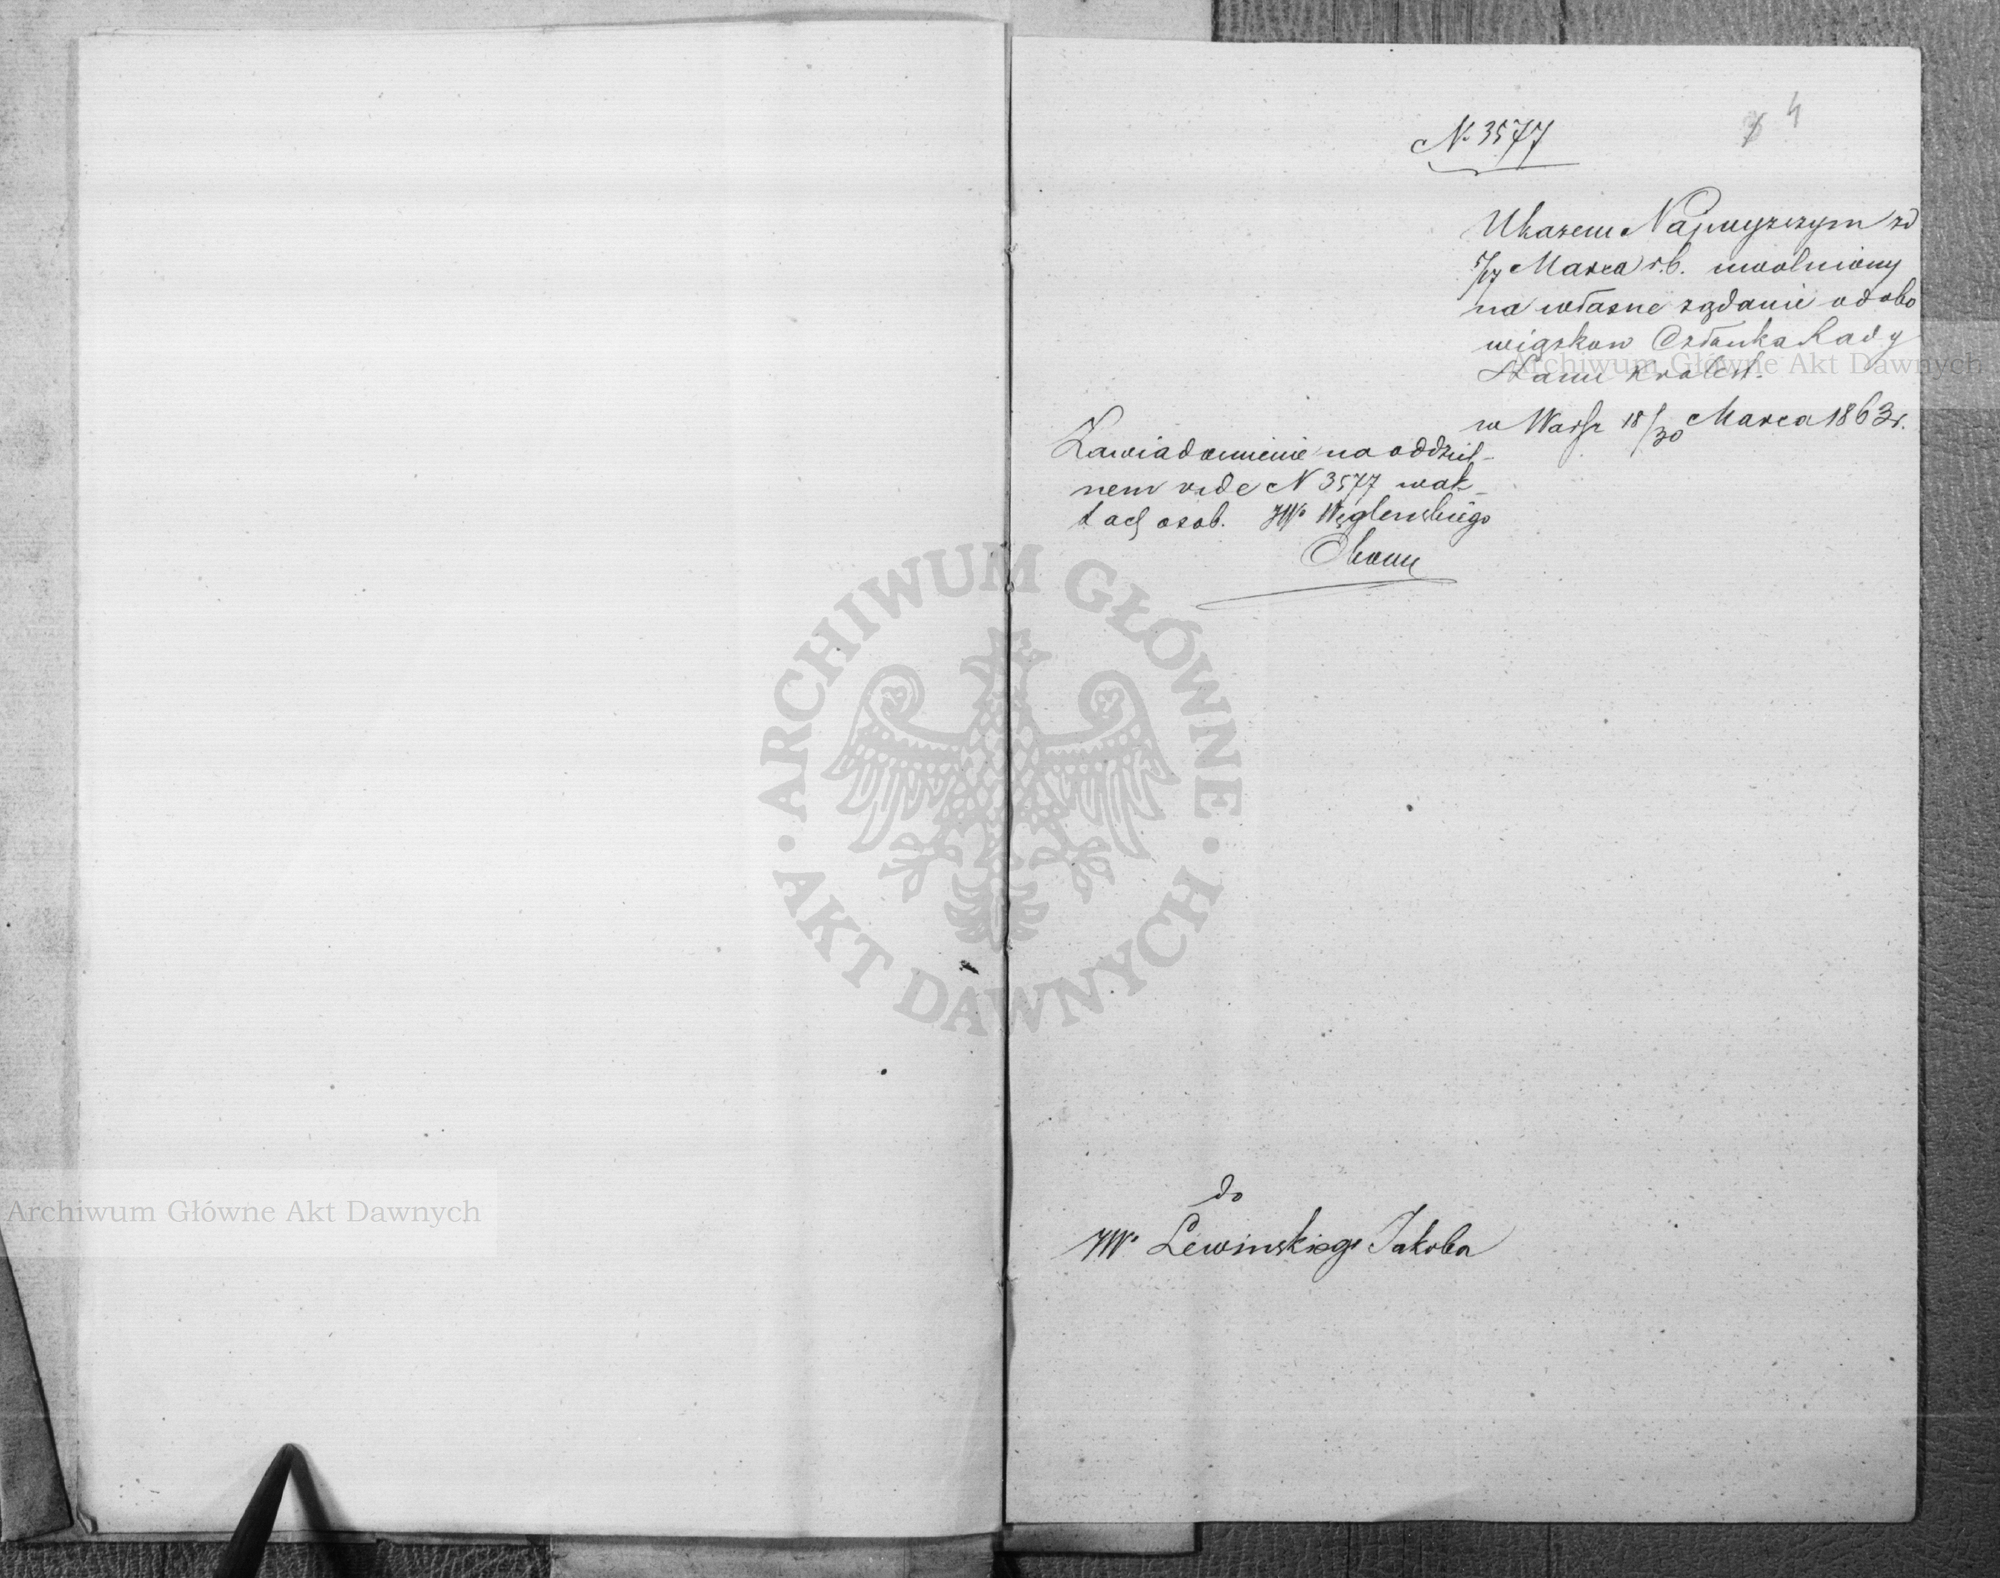 N. 3577
4
Ukazem Najwyższym zd
5/17 Marca r.b. uwolniony
na własne rządanie od obo
wiązkow Członka Rady
Stanu Krolest.
w Warsz 18/30 Marca 1863 r.
Zawiadomienie na oddziel-
nem vide N 3577 w ak-
tach osob. JW° Węglenskiego
do
JW° Lewinskiego Jakoba
ARCHIWUM GŁÓWNE AKT DAWNYCH
Archiwum Główne Akt Dawnych
Archiwum Główne Akt Dawnych